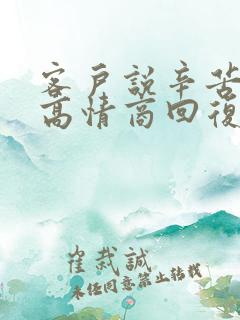 客戶說辛苦
高情商回復
崔裁誠
未经同意禁止转载